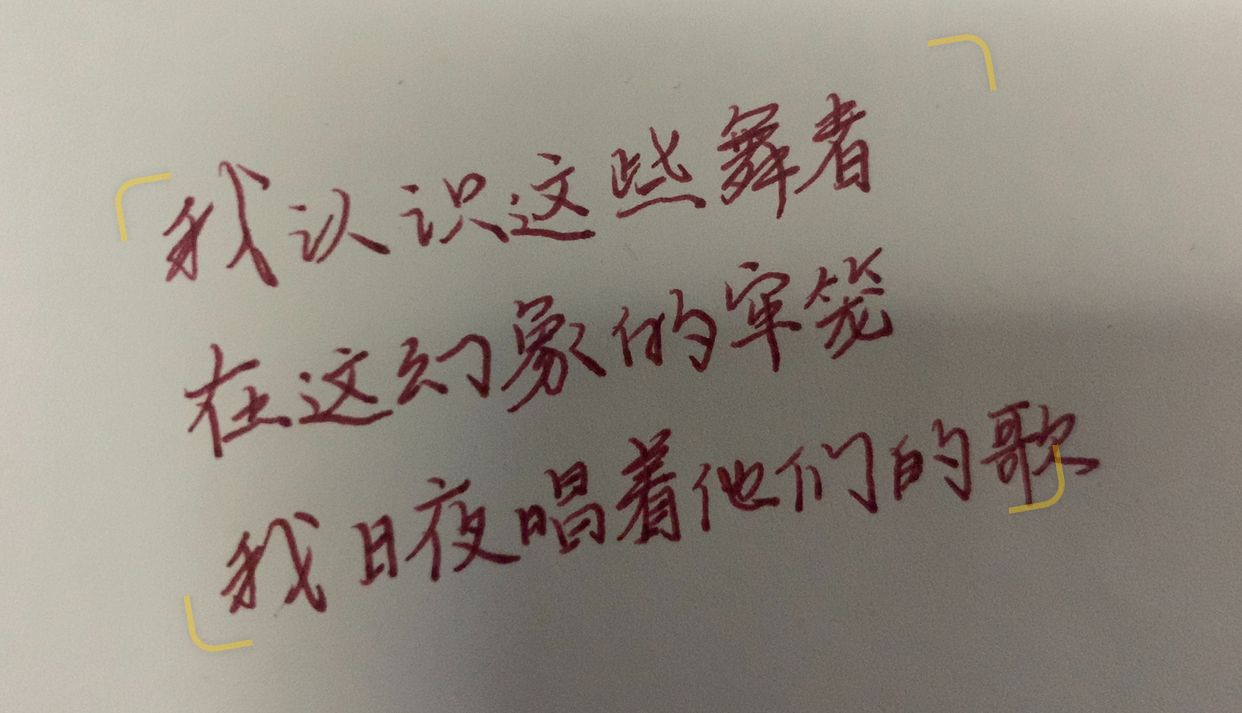 我认识这些舞者
在这幻象的牢笼
我日夜唱着他们的歌